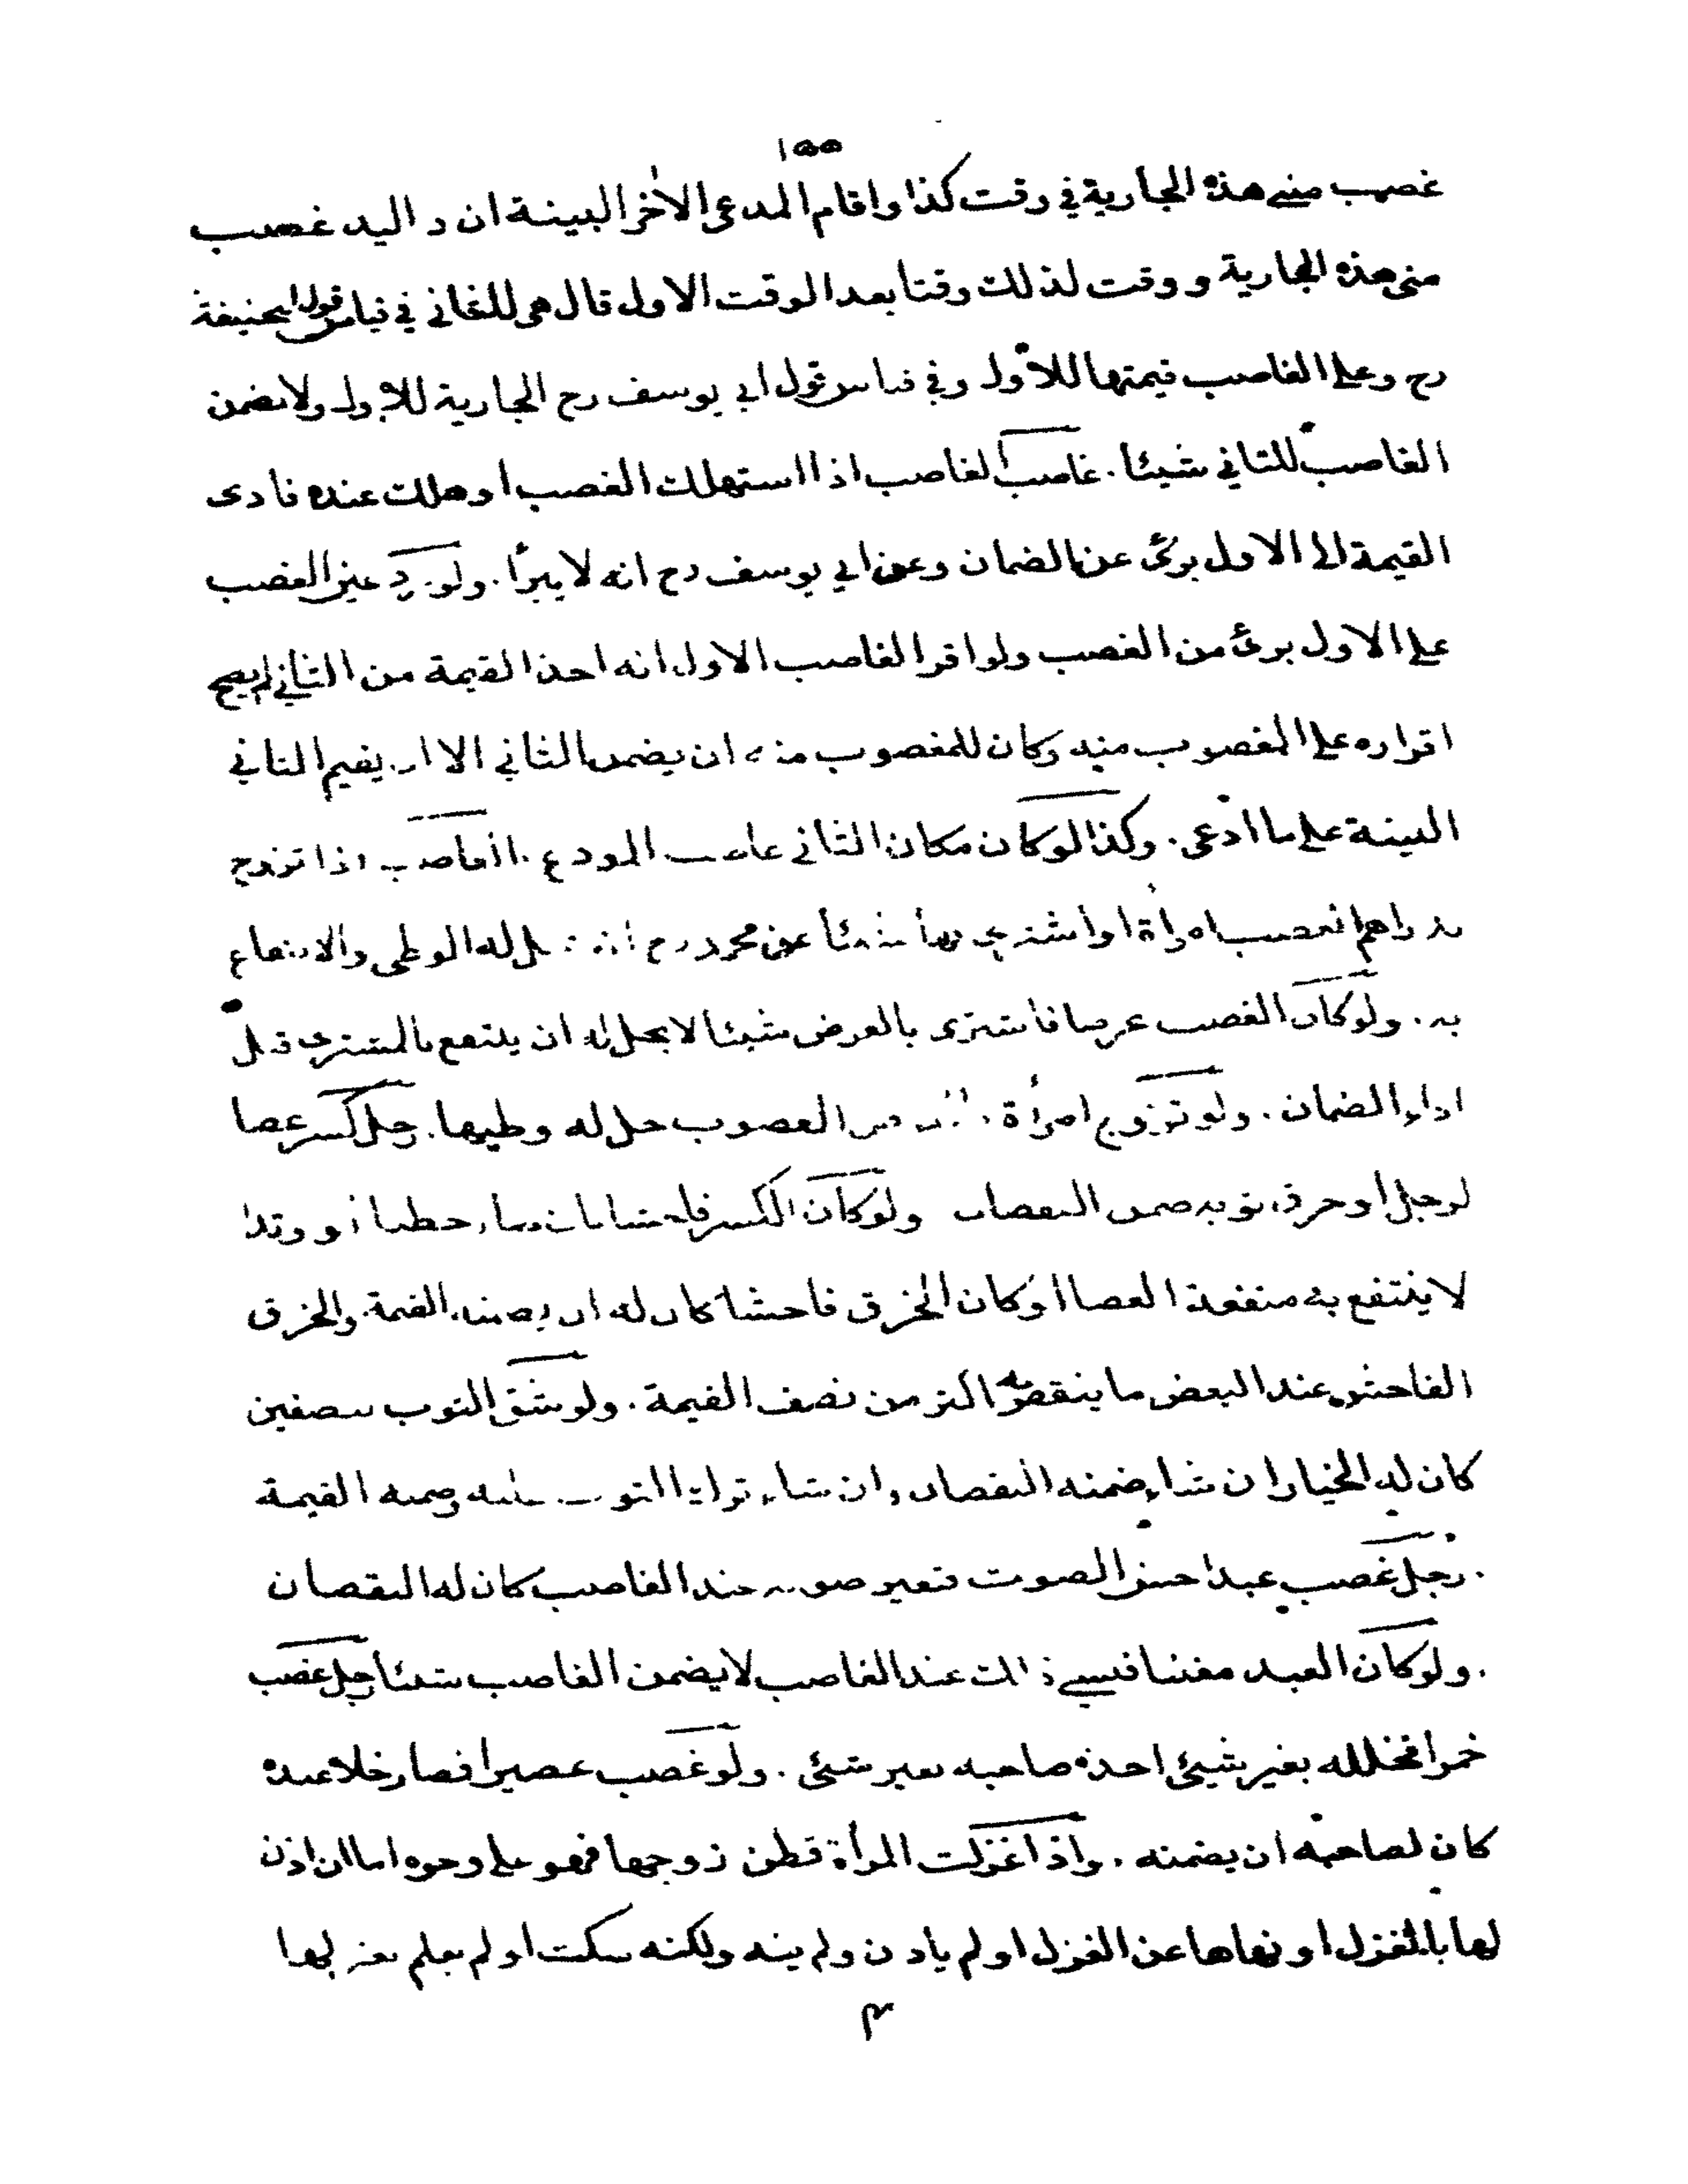 ١٥٥
غصب مني هذه الجارية في وقت كذا واقام المدعي الاخر البينة ان ذ اليد غصب
مني هذه الجارية و وقت لذلك وقتا بعد الوقت الاول قال هي للثاني في قياس قول ابيحنيفة
رح وعلى الغاصب قيمتها للاول وفي قياس قول ابي يوسف رح الجارية للاول ولا يضمن
الغاصب للثاني شيئا . غاصب الغاصب اذا استهلك الغصب او هلك عنده فادى
القيمة الى الاول برئ عن الضمان وعن ابي يوسف رح انه لا يبرأ . ولو رد عين الغصب
على الاول برئ من الغصب ولو اقر الغاصب الاول انه اخذ القيمة من الثاني لم يصح
اقراره على المغصوب منه وكان للمغصوب منه ان يضمن الثاني الا ان يقيم الثاني
البينة على ما ادعى . وكذا لو كان مكان الثاني غاصب المودع . الغاصب اذا تزوج
بدراهم الغصب امرأة او اشترى بها شيئا عن محمد رح انه يحل له الوطي والانتفاع
به . ولو كان الغصب عرضا فاشترى بالعرض شيئا لا يحل له ان ينتفع بالمشترى قبل
اداء الضمان . ولو تزوج امرأة العصوب حل له وطيها . رجل كسر عصا
لرجل او خرق ثوبه ضمن النقصان ولو كان الكسر فاحشا بان صار حطبا او وتدا
لا ينتفع به منفعة العصا او كان الخرق فاحشا كان له ان يضمنه القيمة . والخرق
الفاحش عند البعض ما ينقص به اكثر من نصف القيمة . ولو شق الثوب نصفين
كان له الخيار ان شاء ضمنه النقصان وان شاء ترك الثوب عليه وضمنه القيمة
. رجل غصب عبدا حسن الصوت فتغير صوته عند الغاصب كان له النقصان
. ولو كان العبد مغنيا فنسي ذلك عند الغاصب لا يضمن الغاصب شيئا رجل غصب
خمرا فخلله بغير شيئ اخذه صاحبه بغير شئي . ولو غصب عصيرا فصار خلا عنده
كان لصاحبه ان يضمنه . واذا غزلت المرأة قطن زوجها فهو على وجوه اما ان اذن
لها بالغزل او نهاها عن الغزل او لم ياذن ولم ينه ولكنه سكت او لم يعلم بغزلها